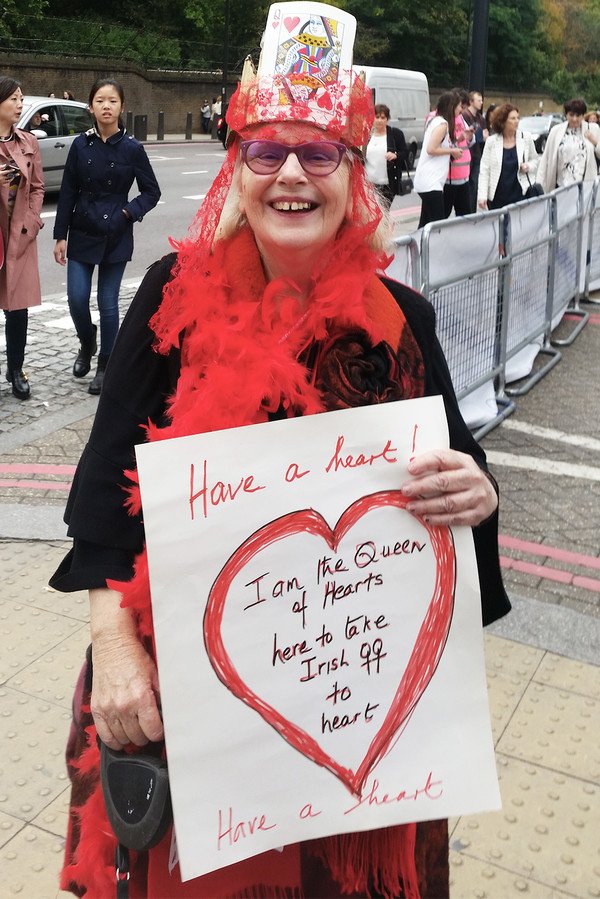 Have a heart!
I am the Queen
of Hearts
here to take
Irish ♀♀
to
heart
Have a heart